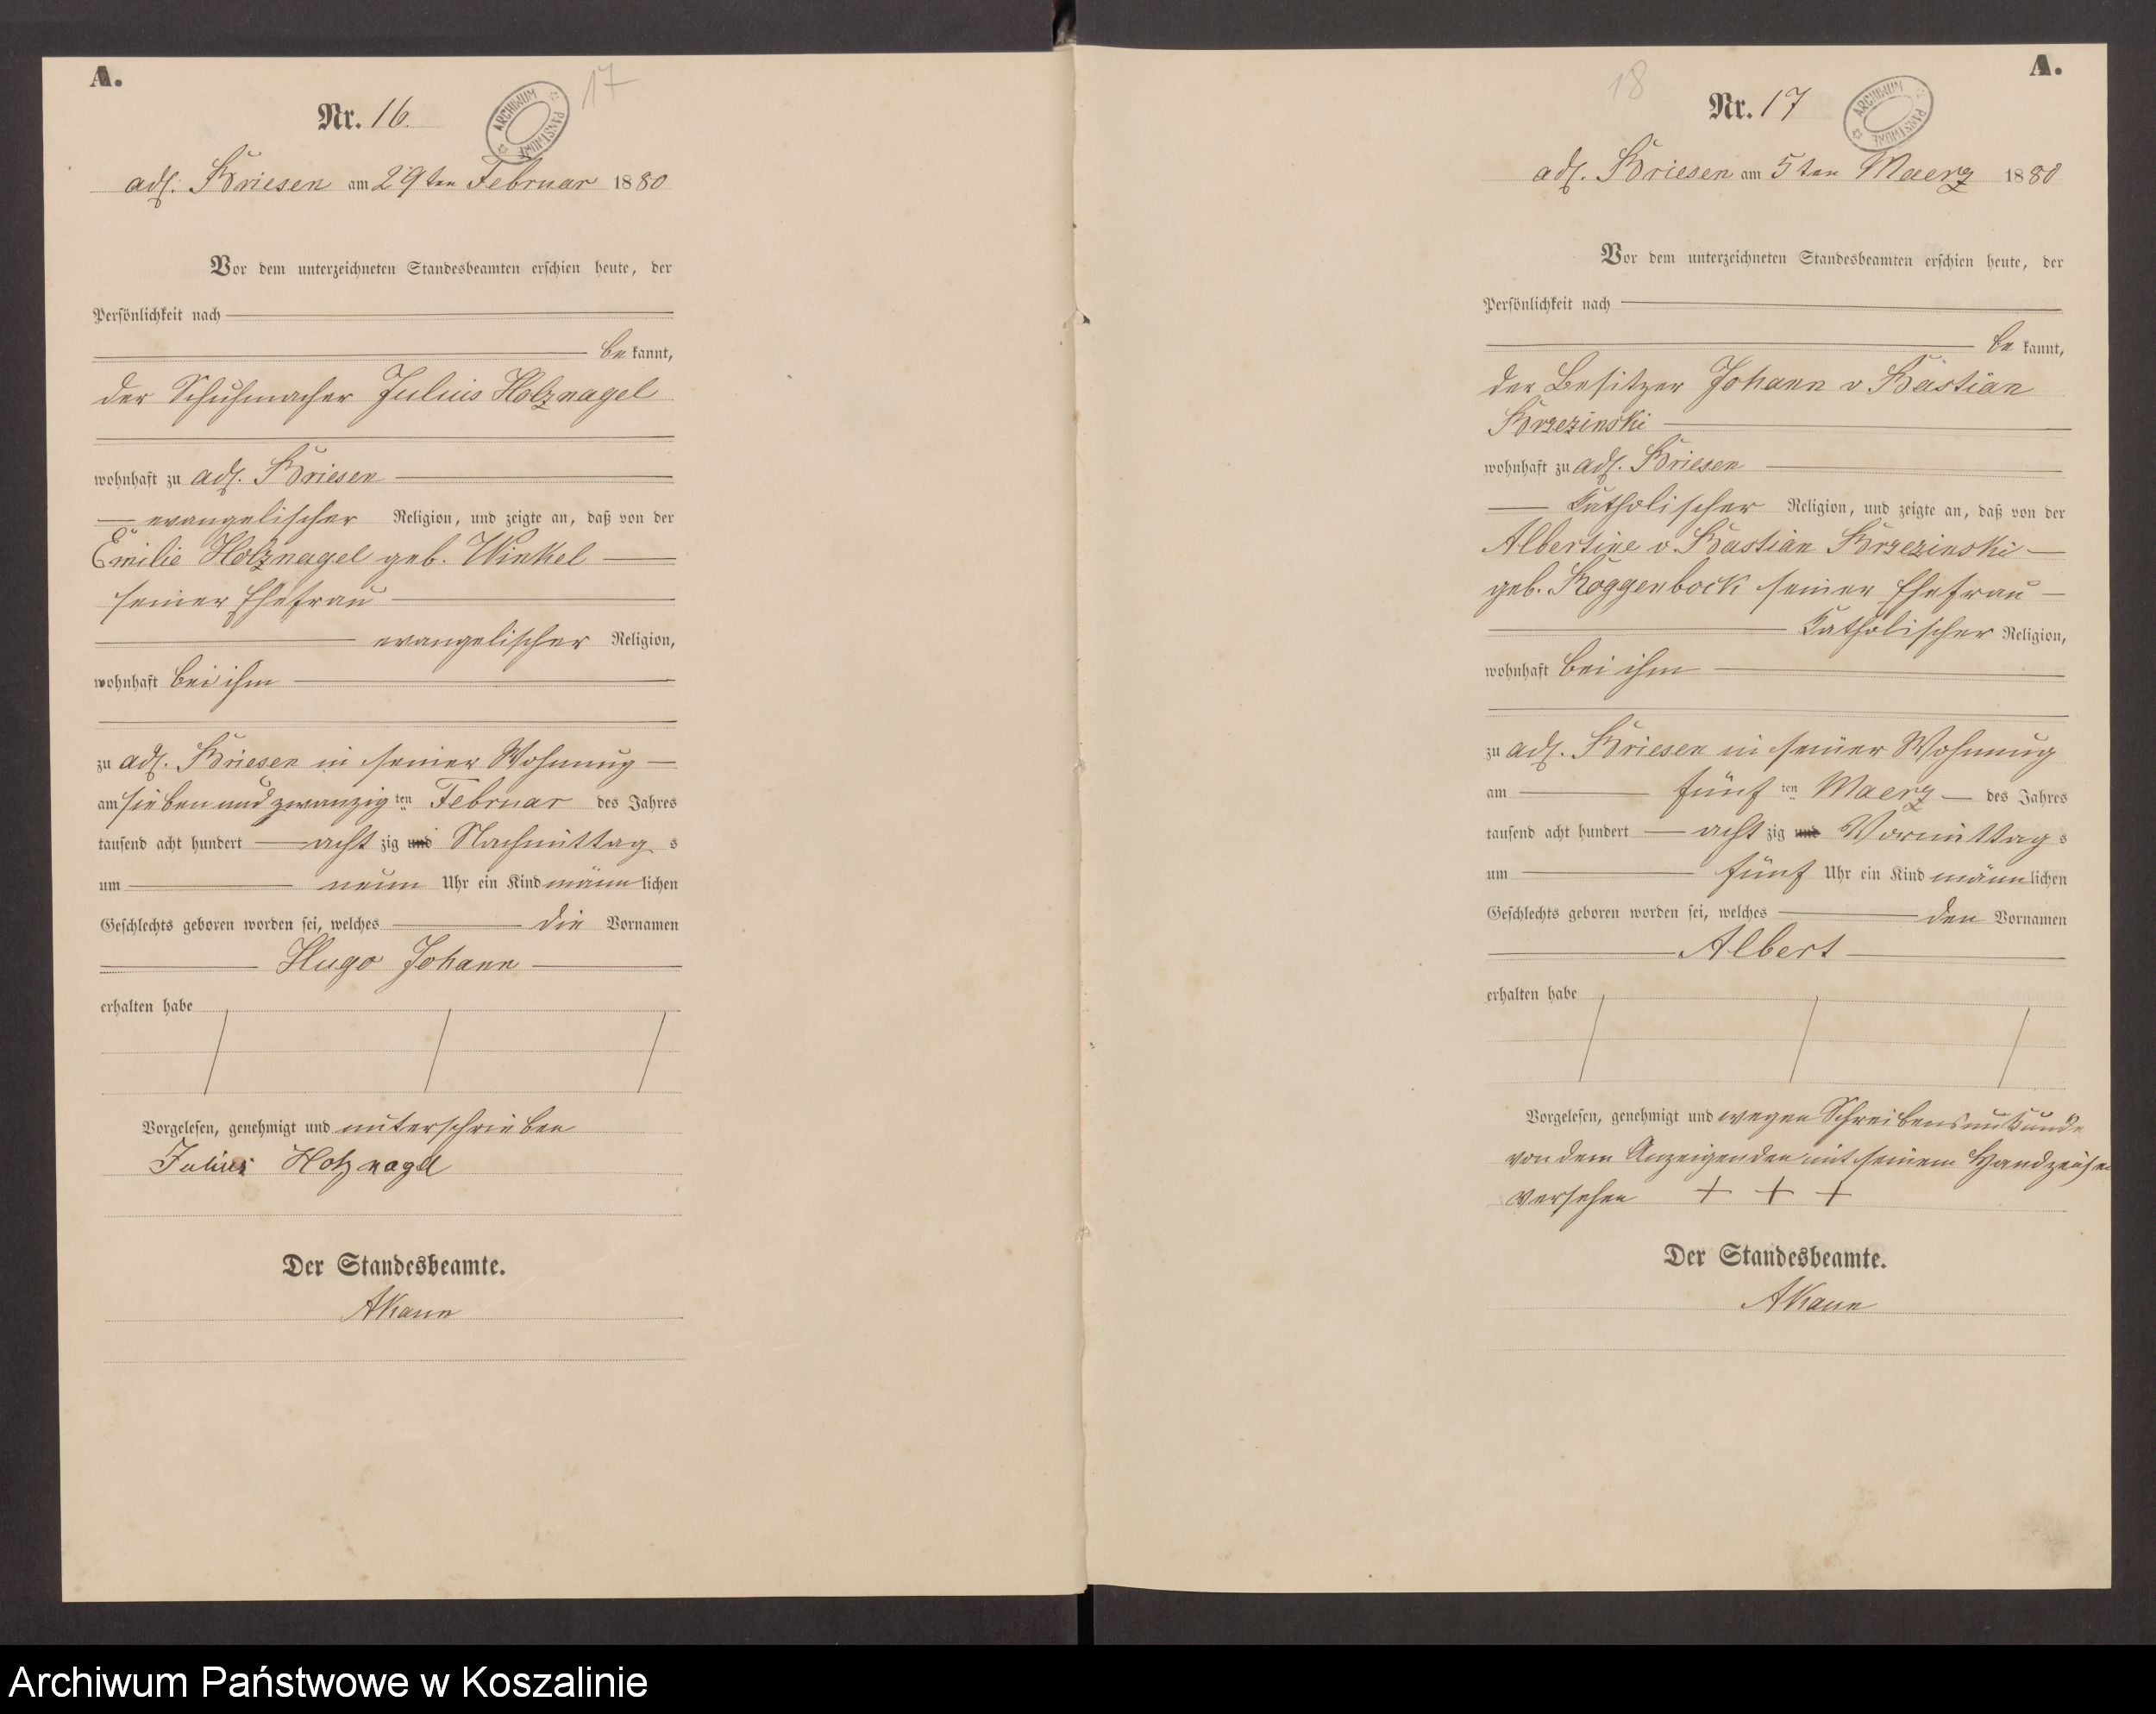 A.
Nr. 16.
ARCHIWUM PAŃSTWOWE
17
adl. Briesen am 29ten Februar 1880
Vor dem unterzeichneten Standesbeamten erschien heute, der
Persönlichkeit nach
be kannt,
der Schuhmacher Julius Holznagel
wohnhaft zu adl. Briesen
evangelischer Religion, und zeigte an, daß von der
Emilie Holznagel geb. Winkel
seiner Ehefrau
evangelischer Religion,
wohnhaft bei ihm
zu adl. Briesen in seiner Wohnung
am sieben und zwanzig ten Februar des Jahres
tausend acht hundert acht zig und Nachmittag s
um neun Uhr ein Kind männ lichen
Geschlechts geboren worden sei, welches die Vornamen
Hugo Johann
erhalten habe
Vorgelesen, genehmigt und unterschrieben
Julius Holznagel
Der Standesbeamte.
AKann
A.
18
Nr. 17
ARCHIWUM PAŃSTWOWE
adl. Briesen am 5ten Maerz 1880
Vor dem unterzeichneten Standesbeamten erschien heute, der
Persönlichkeit nach
be kannt,
der Besitzer Johann v Bastian
Brzezinski
wohnhaft zu adl. Briesen
Katholischer Religion, und zeigte an, daß von der
Albertine v. Bastian Brzezinski
geb. Roggenbock seiner Ehefrau
Katholischer Religion,
wohnhaft bei ihm
zu adl. Briesen in seiner Wohnung
am fünf ten Maerz des Jahres
tausend acht hundert acht zig und Vormittag s
um fünf Uhr ein Kind männ lichen
Geschlechts geboren worden sei, welches den Vornamen
Albert
erhalten habe
Vorgelesen, genehmigt und wegen Schreibensunkunde
von dem Anzeigenden mit seinem Handzeichen
versehen + + +
Der Standesbeamte.
AKann
Archiwum Państwowe w Koszalinie